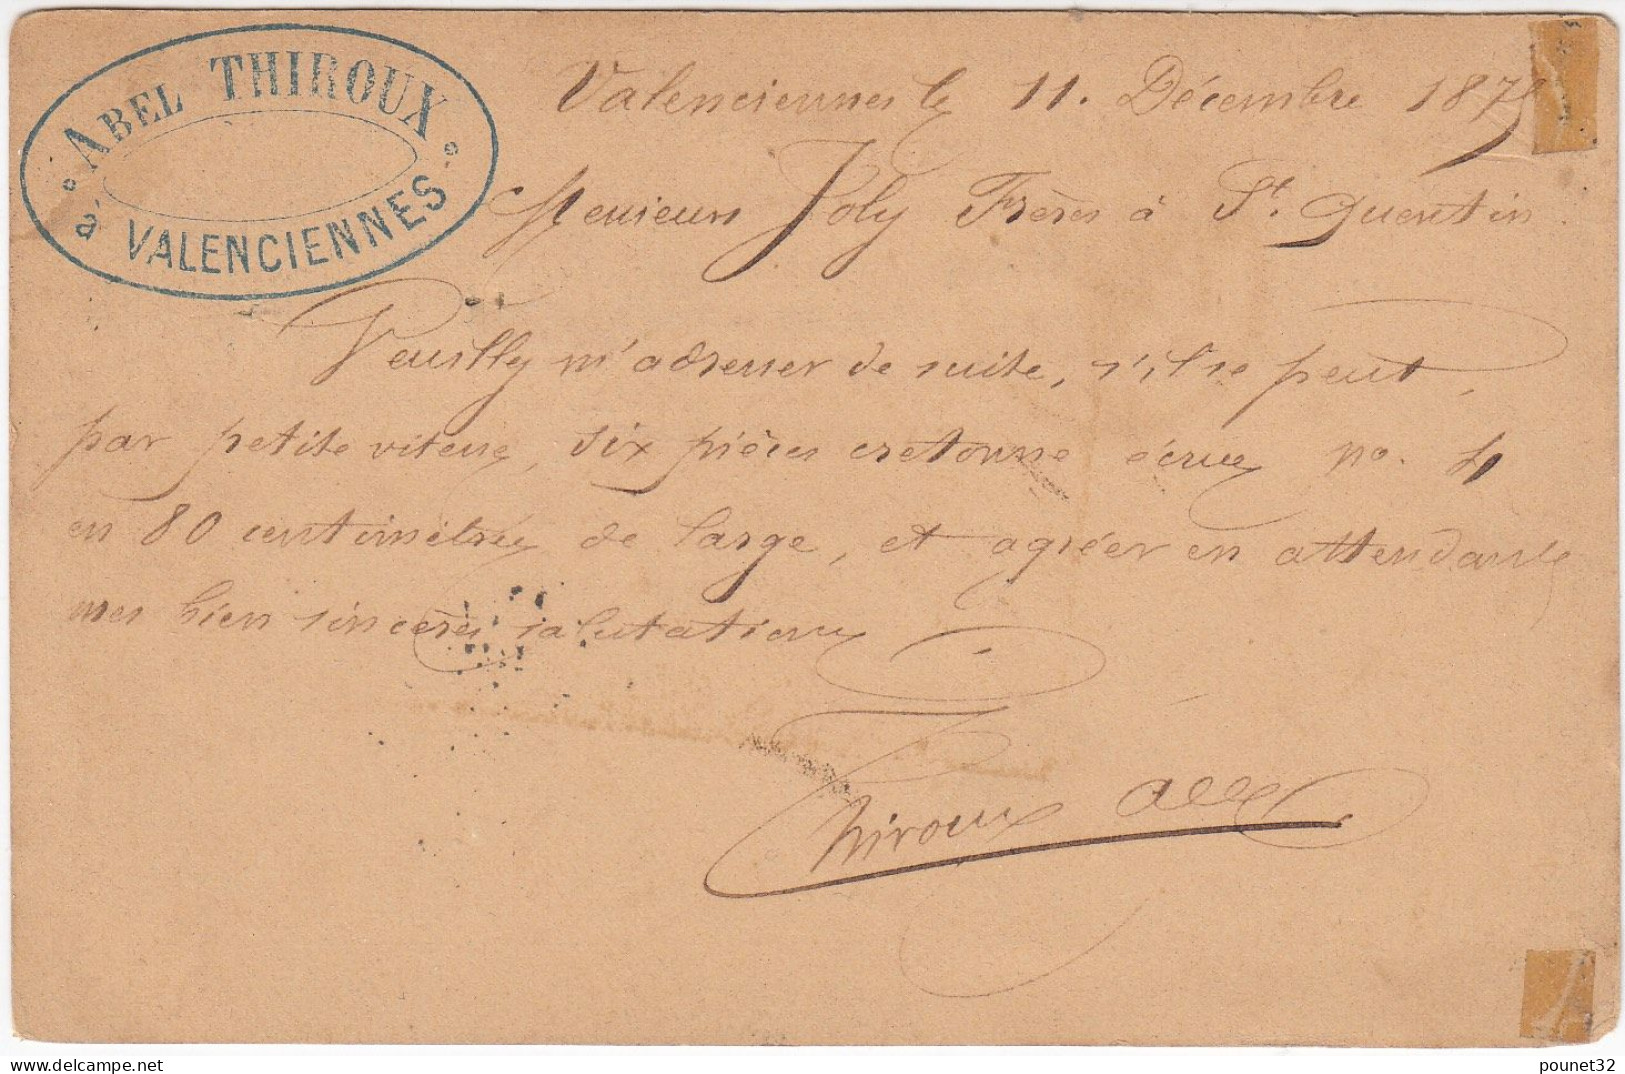 ABEL THIROUX
à VALENCIENNES
Valenciennes le 11. Décembre 187
Messieurs Joly Frères à St. Quentin.
Veuillez m'adresser de suite, s'il se peut,
par petite vitesse, six pièces cretonne écrue no. 4
en 80 centimètres de large, et agréer en attendant
mes bien sincères salutations
Thiroux Abel
pounet32